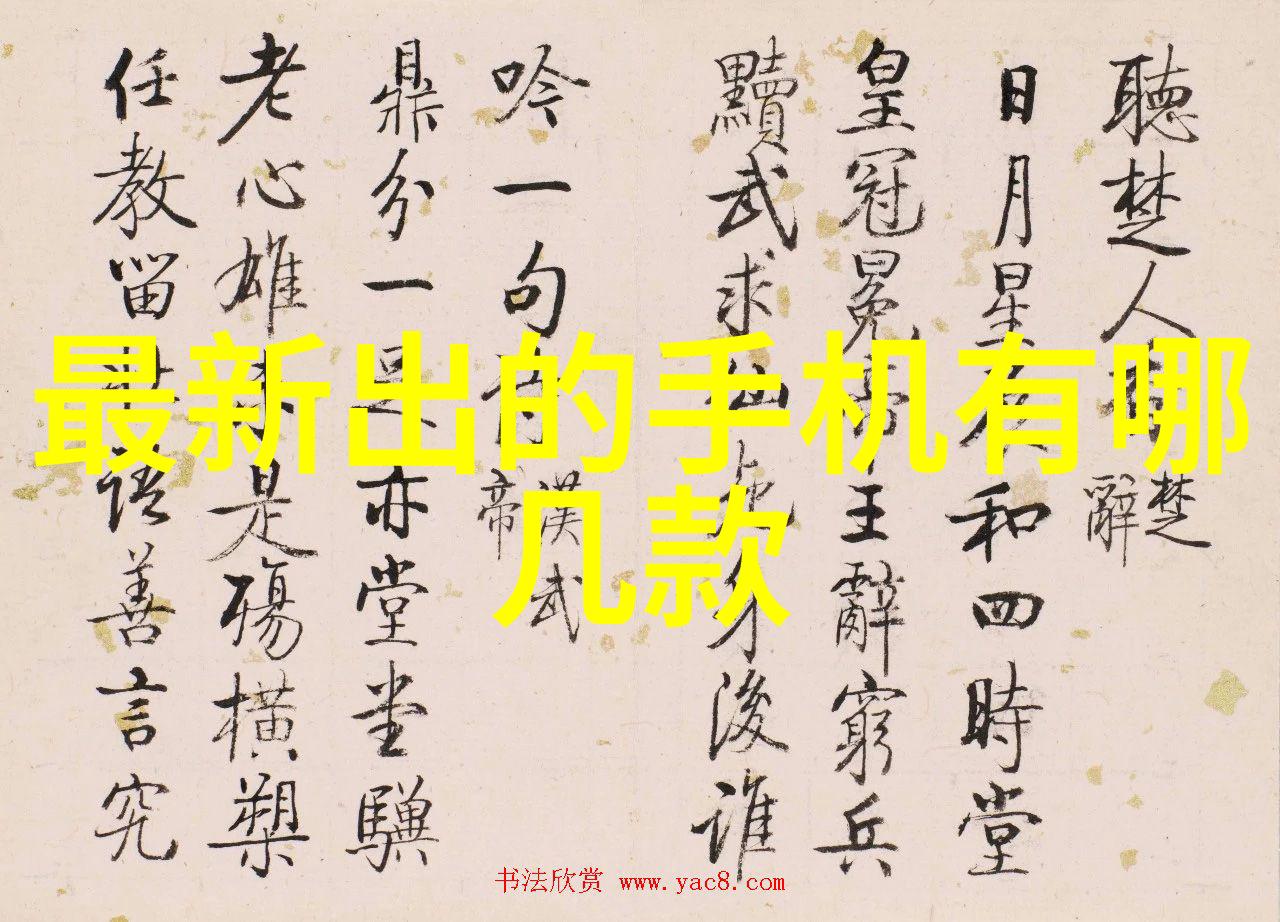 最新出的手机有哪
几款
聽楚人
楚
辭
日月星 和四時堂
皇冠冕 王辭窮兵
黷武求仙 身後誰
吟一句
漢武
帝
鼎分一 亦堂堂驥
老心雄 是殤橫槊
任教留 語善言究
书法欣赏 www.yac8.com